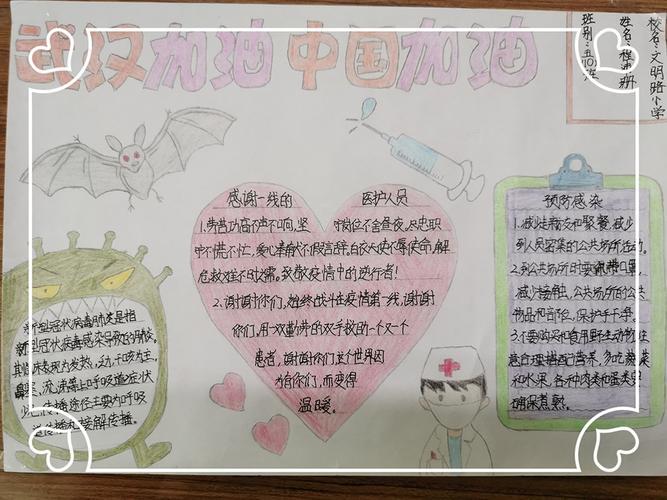 武汉加油 中国加油
校名:文明路小学
姓名:程
班别:五
感谢一线的 医护人员
1.劳苦功高不声不响,坚守岗位不舍昼夜,尽忠职
守不慌不忙,爱心奉献不假言辞。白衣天使不辱使命,解
危救难不时之需。致敬疫情中的逆行者!
2.谢谢你们,始终战斗在疫情第一线,谢谢
你们,用一双勤劳的双手救助一个又一个
患者,谢谢你们这个世界因
为你们,而变得
温暖。
预防感染
1.减少走亲访友和聚餐,减少
到人员密集的公共场所活动。
2.到公共场所时要佩带口罩,
减少接触,公共场所的公共
物品和部位,保护手干净。
3.不要购买和食用野生动物注
意合理搭配营养,多吃蔬菜
和水果,各种肉类和蛋类要
确保煮熟。
新型冠状病毒肺炎是指
新型冠状病毒感染导致的肺炎。
其临床表现为发热,乏力,干咳为主,
鼻塞,流涕等上呼吸道症状
少,传播途径主要为呼吸
道传播和接触传播。